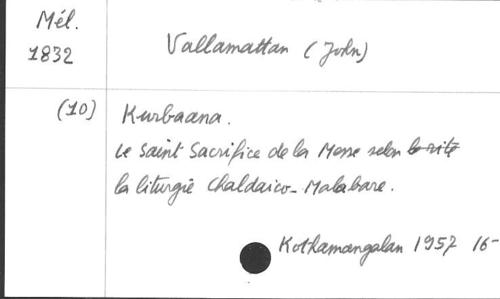 Mél.
1832
Vallamattan (John)
(10)
Kurbaana.
Le Saint Sacrifice de la Messe selon le rite
la liturgie Chaldaico-Malabare.
Kothamangalan 1957 16-